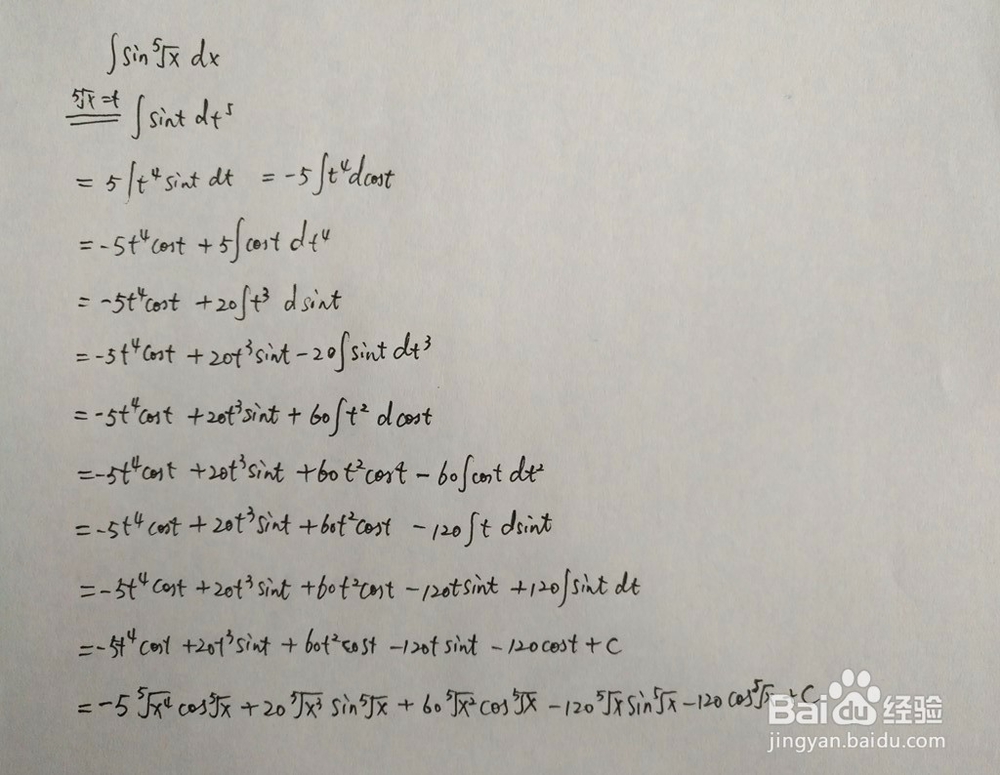 ∫sin⁵√x dx
⁵√x=t ∫sint dt⁵
= 5∫t⁴sint dt = -5∫t⁴dcost
= -5t⁴cost + 5∫cost dt⁴
= -5t⁴cost + 20∫t³ dsint
= -5t⁴cost + 20t³sint - 20∫sint dt³
= -5t⁴cost + 20t³sint + 60∫t² dcost
= -5t⁴cost + 20t³sint + 60t²cost - 60∫cost dt²
= -5t⁴cost + 20t³sint + 60t²cost - 120∫t dsint
= -5t⁴cost + 20t³sint + 60t²cost - 120tsint + 120∫sint dt
= -5t⁴cost + 20t³sint + 60t²cost - 120tsint - 120cost + C
= -5⁵√x⁴cos⁵√x + 20⁵√x³sin⁵√x + 60⁵√x²cos⁵√x - 120⁵√xsin⁵√x - 120cos⁵√x + C
Baidu经验
jingyan.baidu.com